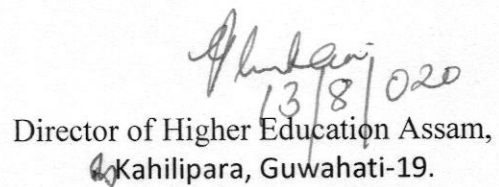 13/8/020
Director of Higher Education Assam,
Kahilipara, Guwahati-19.